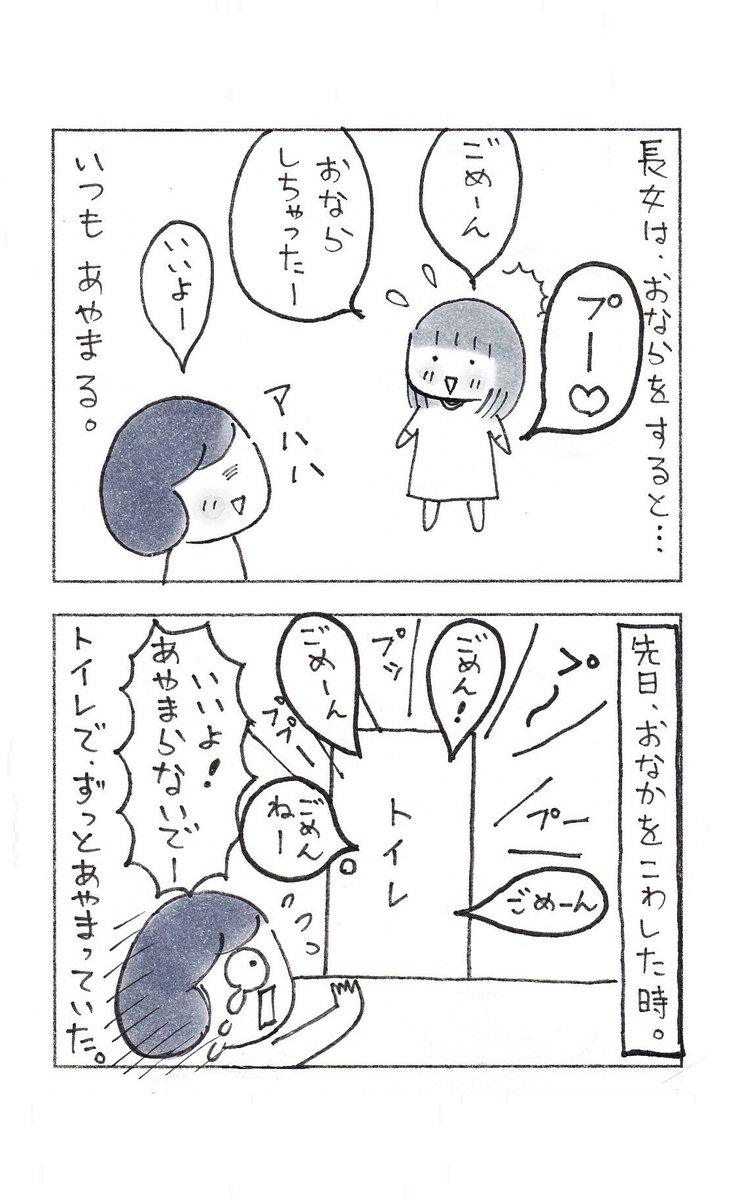 長女は、おならをすると…
プー♡
ごめーん
おなら
しちゃったー
いいよー
アハハ
いつもあやまる。
先日、おなかをこわした時。
プ～
プー
ごめん!
ごめーん
プッ
ごめーん
ププー
ごめん
ねー
トイレ
いいよ!
あやまらないでー
トイレで、ずっとあやまっていた。